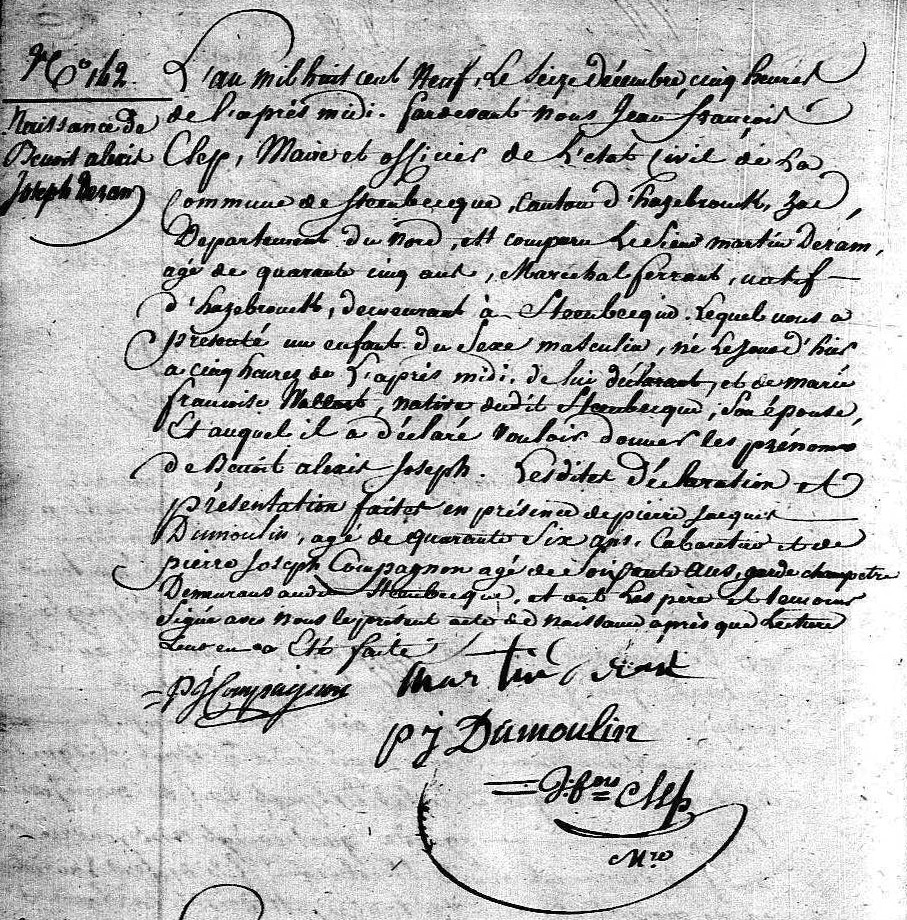 N.º 162.
Naissance de
Benoit alexis
Joseph Deram
L'an mil huit cent Neuf, Le Seize décembre, cinq heures
de l'après midi. Pardevant nous Jean françois
Clep, Maire et officier de L'état Civil de La
Commune de Steenbecque, Canton d'hazebrouck,
Departement du Nord, est comparu Le Sieur martin Deram,
agé de quarante cinq ans, Maréchal ferrant, natif
d'hazebrouck, demeurant à Steenbecque. Lequel nous a
présenté un enfant du Sexe masculin, né Le Jour d'hier
a cinq heures de L'après midi, de lui déclarant, et de marie
francoise Wallart, native dudit Steenbecque, Son épouse,
Et auquel il a déclaré vouloir donner les prénoms
de Benoit alexis Joseph. Lesdites Déclaration et
présentation faites en présence de pierre Jacques
Dumoulin, agé de quarante Six ans, Cabaretier et de
pierre Joseph Compagnon agé de soixante ans, garde champetre
Demeurans audit Steenbecque, et ont Les père et temoins
Signé avec nous le présent acte de Naissance après que Lecture
Leur en a Eté faite
PJ Compagnon
martin deram
pj Dumoulin
J. fçois Clep
Mre